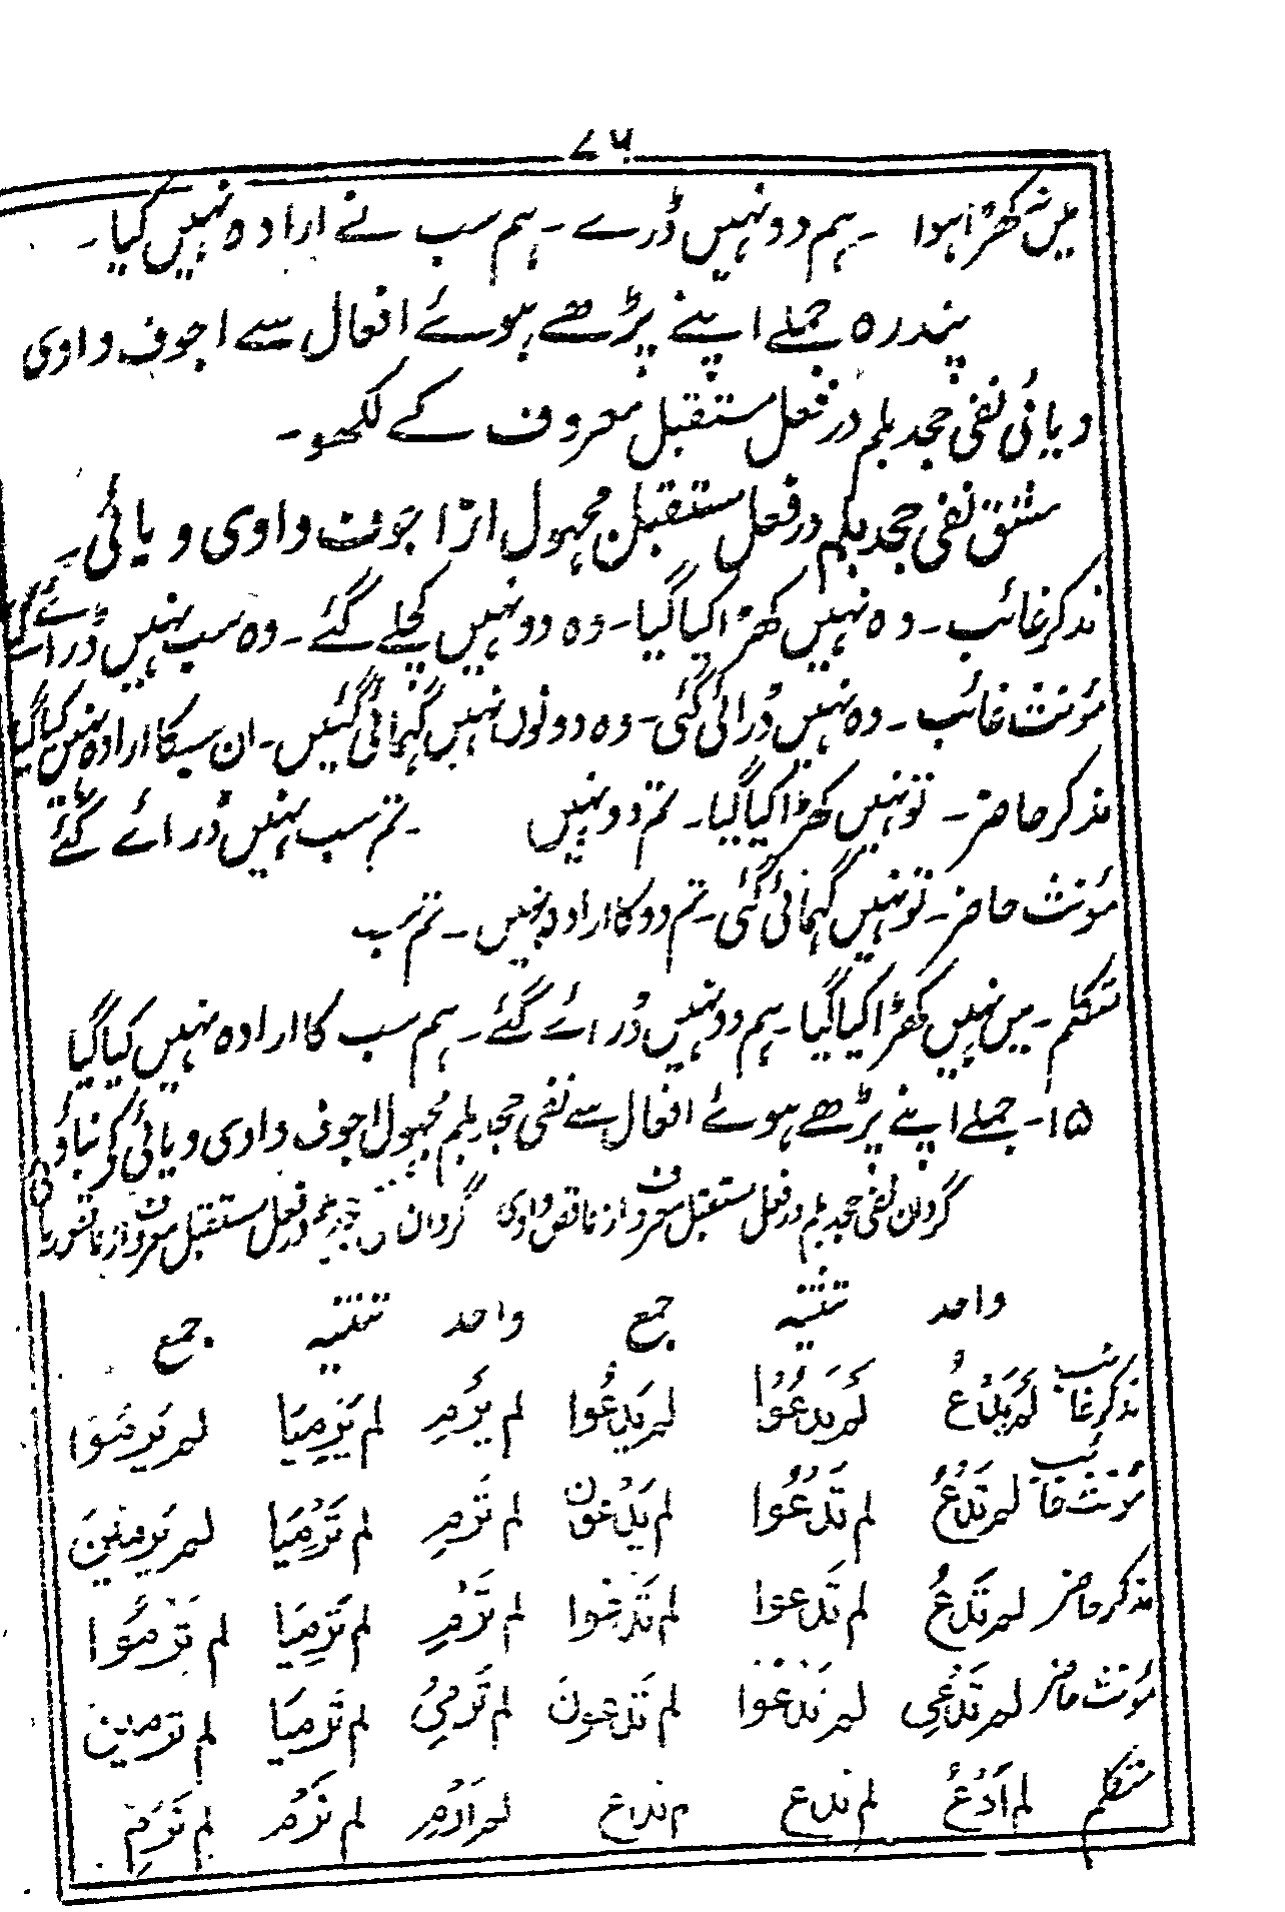 ۷۵
میں نہ کھڑا ہوا ۔ ہم دو نہیں ڈرے ۔ ہم سب نے ارادہ نہیں کیا ۔
پندرہ جملے اپنے پڑھے ہوئے افعال سے اجوف واوی
و یائی نفی جحد بلم در فعل مستقبل معروف کے لکھو ۔
مشق نفی جحد بلم در فعل مستقبل مجہول از اجوف واوی و یائی ۔
مذکر غائب ۔ وہ نہیں کھڑا کیا گیا ۔ وہ دو نہیں کچلے گئے ۔ وہ سب نہیں ڈرائے گئے
مؤنث غائب ۔ وہ نہیں ڈرائی گئی ۔ وہ دونوں نہیں گہمائی گئیں ۔ ان سبکا ارادہ نہیں کیا گیا
مذکر حاضر ۔ تو نہیں کھڑا کیا گیا ۔ تم دو نہیں ۔ تم سب نہیں ڈرائے گئے
مؤنث حاضر ۔ تو نہیں گہمائی گئی ۔ تم دو کا ارادہ نہیں ۔ تم سب
متکلم ۔ میں نہیں کھڑا کیا گیا ۔ ہم دو نہیں ڈرائے گئے ۔ ہم سب کا ارادہ نہیں کیا گیا
۱۵ ۔ جملے اپنے پڑھے ہوئے افعال سے نفی جحد بلم مجہول اجوف واوی و یائی کر بناؤ
گردان نفی جحد بلم در فعل مستقبل معروف از ناقص واوی گردان در فعل مستقبل معروف از
واحد تثنیہ جمع واحد تثنیہ جمع
مذکر غائب لَمْ يَدْعُ لَمْ يَدْعُوَا لم يَدْعُوا لم يَرْمِ لم يَرْمِيَا لم يَرْمُوا
مؤنث غائب لم تَدْعُ لم تَدْعُوَا لم يَدْعُون لم تَرْمِ لم تَرْمِيَا لم يَرْمِينَ
مذکر حاضر لم تَدْعُ لم تَدعوا لم تَدْعُوا لم تَرْمِ لم تَرْمِيَا لم تَرْمُوا
مؤنث حاضر لم تَدْعِي لم تَدْعُوَا لم تَدعونَ لم تَرْمِي لم تَرْمِيَا لم ترمين
متکلم لم اَدْعُ لم ندع م ندع لم اَرْمِ لم نَرْمِ لم نَرْمِ